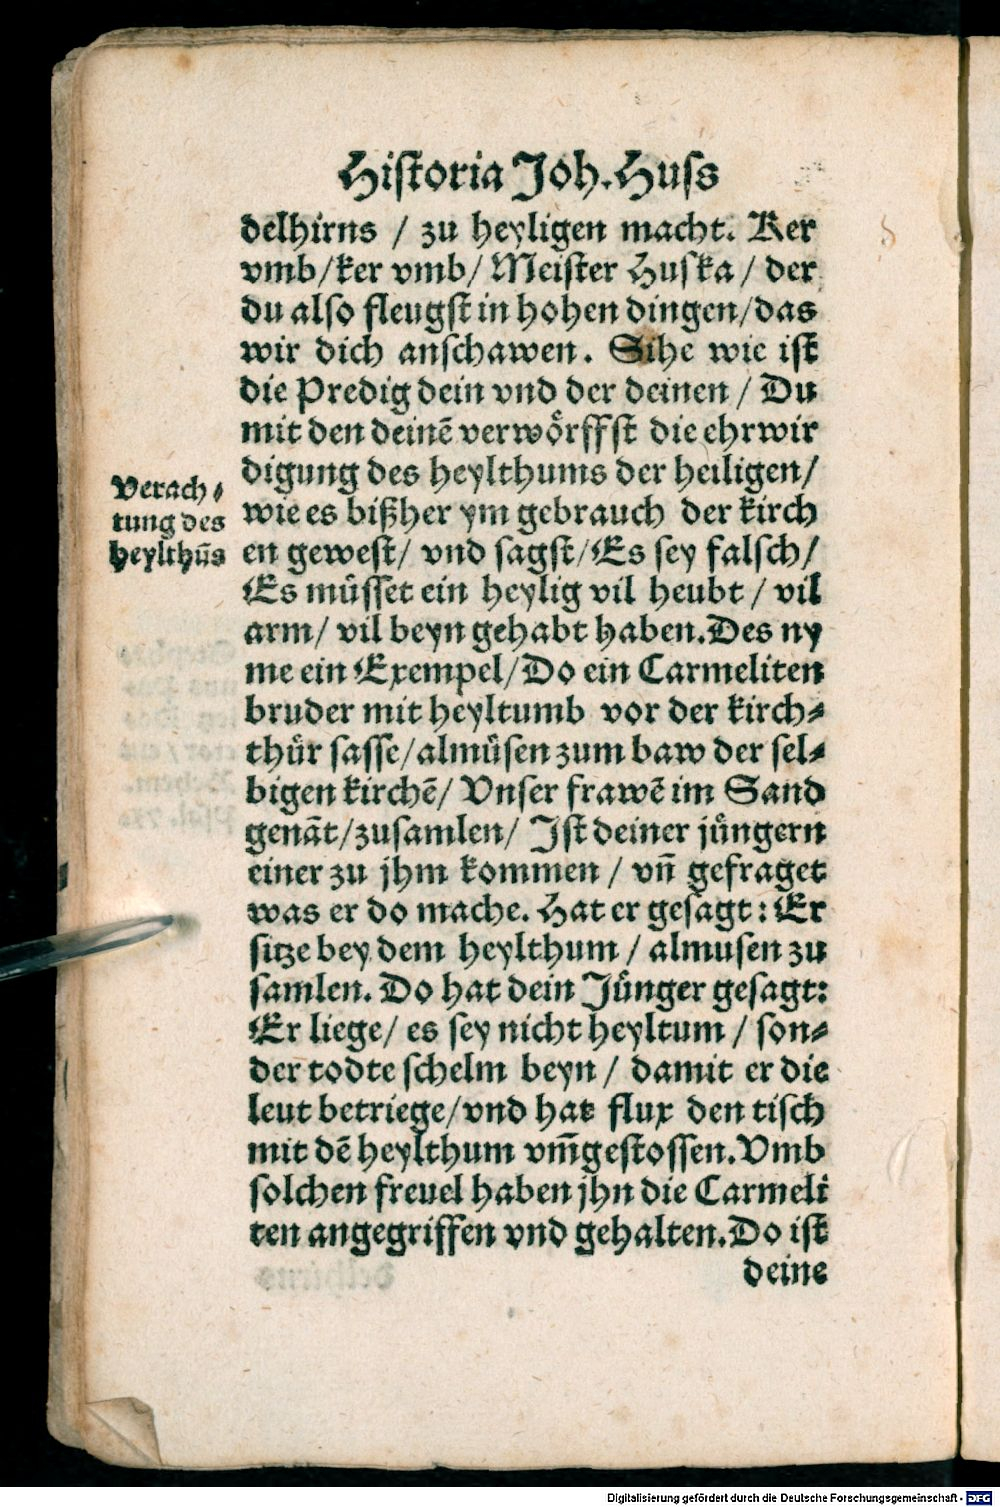 Historia Joh. Huss
delhirns / zu heyligen macht. Ker
vmb/ker vmb/ Meister Huska / der
du also fleugst in hohen dingen/das
wir dich anschawen. Sihe wie ist
die Predig dein vnd der deinen / Du
mit den deinẽ verwoͤrffst die ehrwir
digung des heylthums der heiligen/
wie es bißher ym gebrauch der kirch
en gewest/ vnd sagst/Es sey falsch/
Es muͤsset ein heylig vil heubt / vil
arm/ vil beyn gehabt haben.Des ny
me ein Exempel/Do ein Carmeliten
bruder mit heyltumb vor der kirch⸗
thuͤr sasse/almuͤsen zum baw der sel⸗
bigen kirchẽ/ Vnser frawẽ im Sand
genãt/zusamlen/ Ist deiner juͤngern
einer zu jhm kommen / vñ gefraget
was er do mache. Hat er gesagt: Er
sitze bey dem heylthum / almusen zu
samlen. Do hat dein Juͤnger gesagt:
Er liege/ es sey nicht heyltum / son⸗
der todte schelm beyn / damit er die
leut betriege/vnd hat flux den tisch
mit dẽ heylthum vm̃gestossen.Vmb
solchen freuel haben jhn die Carmeli
ten angegriffen vnd gehalten.Do ist
deine
Verach⸗
tung des
heylthũs
Digitalisierung gefördert durch die Deutsche Forschungsgemeinschaft - DFG